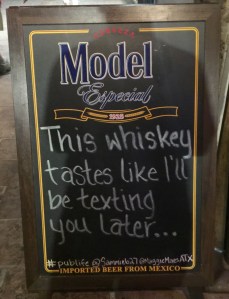 Model
Especial
This whiskey
tastes like I'll
be texting
you later...
#publife @Sammieb27@MaggieMaesATX
IMPORTED BEER FROM MEXICO